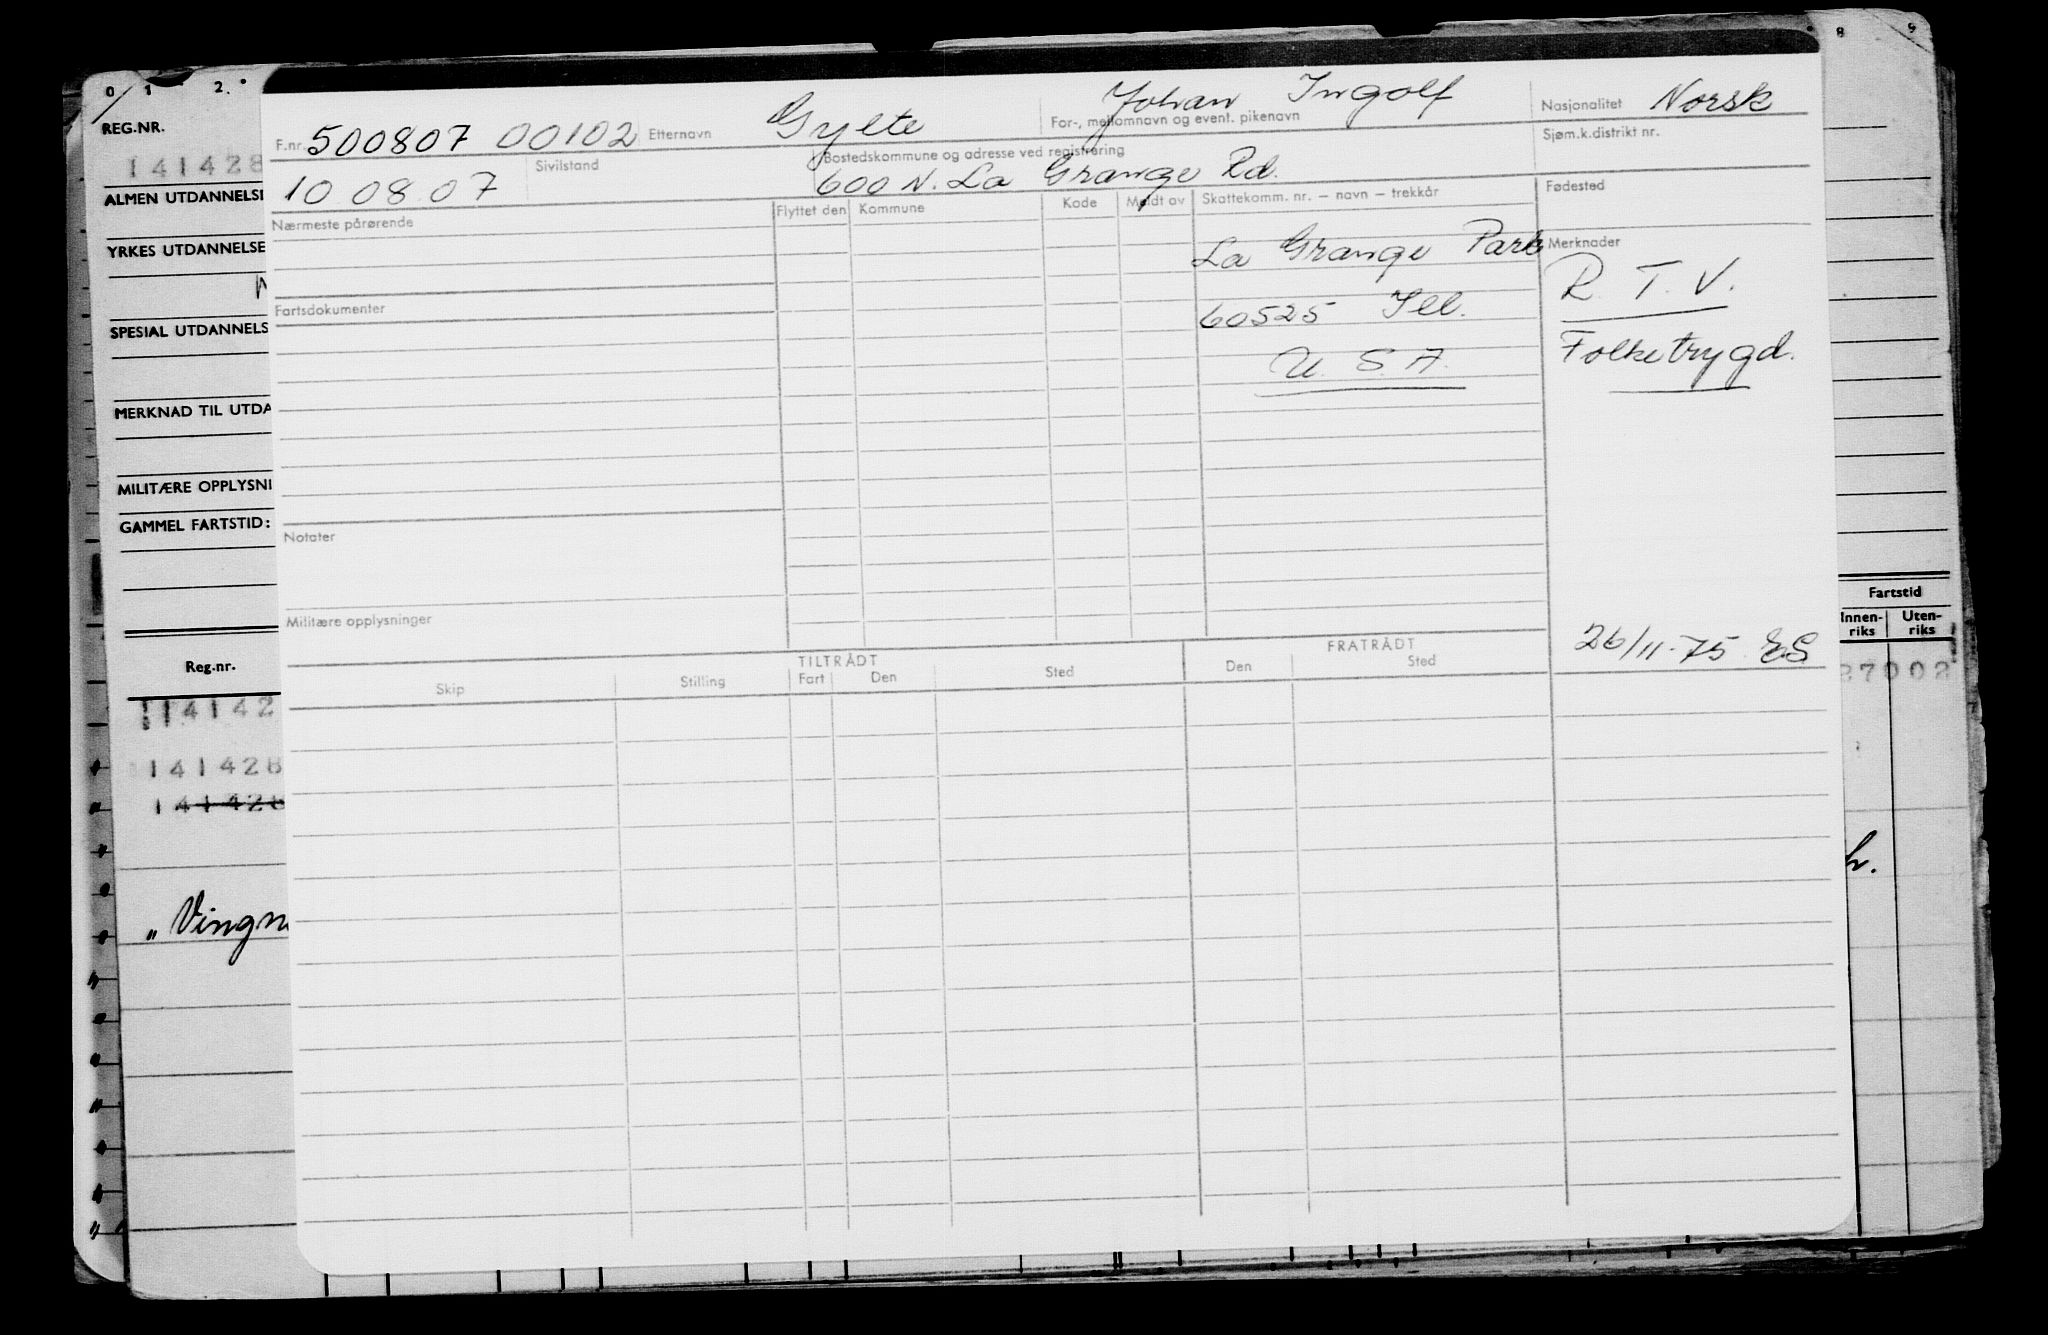 0 1 2. 8 9
REG.NR.
141428
ALMEN UTDANNELSE
YRKES UTDANNELSE
SPESIAL UTDANNELS
MERKNAD TIL UTDA
MILITÆRE OPPLYSNI
GAMMEL FARTSTID:
Reg.nr.
114142
141428
141428
„Vingn
F.nr. 500807 00102 Etternavn Gylte For-, mellomnavn og event. pikenavn Johan Ingolf Nasjonalitet Norsk
10 08 07 Sivilstand Bostedskommune og adresse ved registrering 600 N. La Grange Rd. Sjøm.k.distrikt nr.
Nærmeste pårørende Flyttet den Kommune Kode Meldt av Skattekomm. nr. – navn – trekkår Fødested
La Grange Park Merknader
R. T. V.
Fartsdokumenter 60525 Ill.
U. S. A. Folketrygd.
Notater
Militære opplysninger 26/11-75 ES
TILTRÅDT FRATRÅDT
Skip Stilling Fart Den Sted Den Sted
Fartstid
Innen-riks Uten-riks
27002
h.